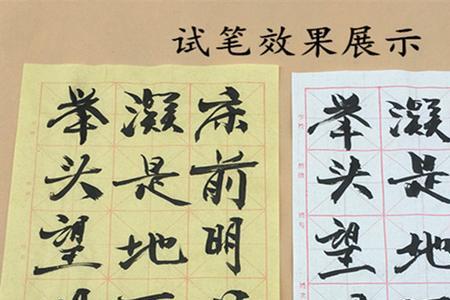 试笔效果展示
床前明
凝是地
举头望
凝是地
举头望